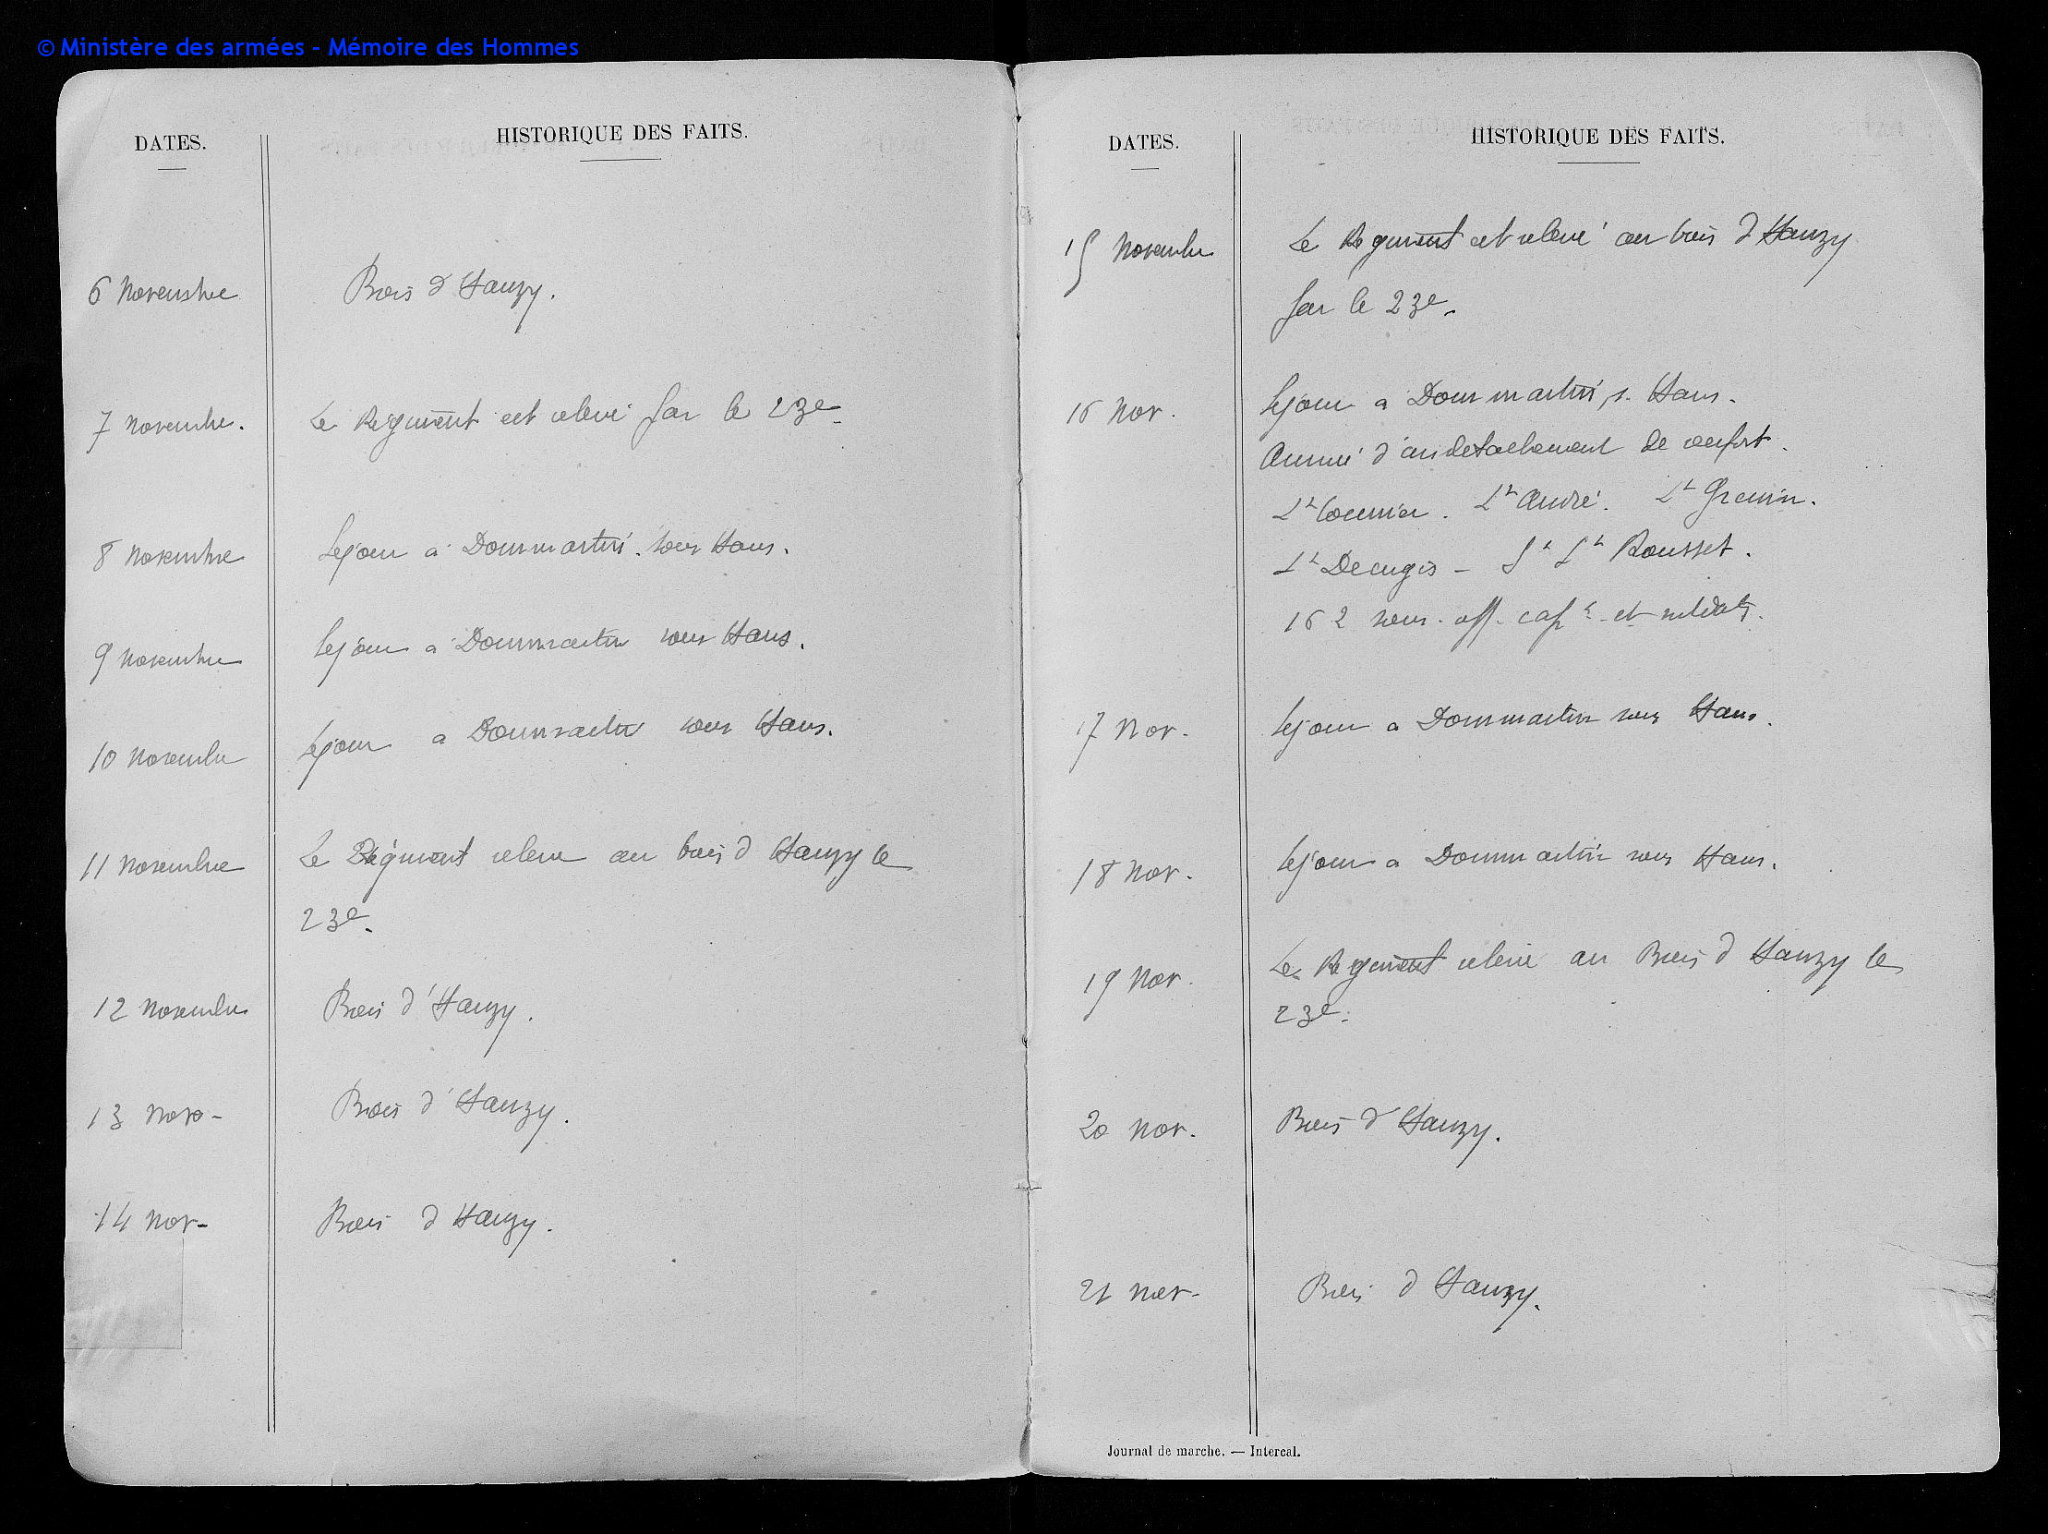 © Ministère des armées - Mémoire des Hommes
DATES.
HISTORIQUE DES FAITS.
6 Novembre
Bois d Hauzy.
7 Novembre.
Le Régiment est relevé par le 23e.
8 Novembre
Séjour à Dommartin sous Hans.
9 Novembre
Séjour à Dommartin sous Hans.
10 Novembre
Séjour a Dommartin sous Hans.
11 Novembre
Le Régiment releve au bois d Hauzy le
23e.
12 Novembre
Bois d'Hauzy.
13 Nov -
Bois d'Hauzy.
14 Nov -
Bois d Hauzy.
DATES.
HISTORIQUE DES FAITS.
15 Novembre
Le Regiment est relevé au bois d Hauzy
par le 23e.
16 Nov.
Séjour a Dommartin s. Hans.
Arrivée d'un detachement de renfort.
Lt Lt André. Lt
Lt Decugis - S Lt Rousset.
162 sous-off. capx et soldats.
17 Nov.
Séjour a Dommartin sous Hans.
18 Nov.
Séjour a Dommartin sous Hans.
19 Nov.
Le Regiment releve au Bois d Hauzy le
23e.
20 Nov.
Bois d'Hauzy.
21 Nov -
Bois d Hauzy.
Journal de marche. — Intercal.